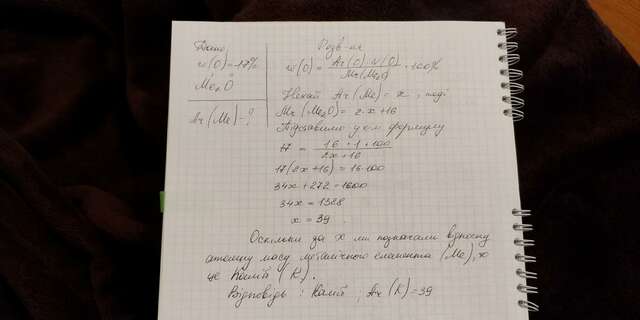 Дано:
w(O)=17%
Me₂O
Ar(Me)-?
Розв-ня
w(O) = Ar(O)·N(O) / Mr(Me₂O) · 100%
Нехай Ar(Me) = x, тоді
Mr(Me₂O) = 2·x+16
Підставимо у цю формулу
17 = 16·1·100 / 2x+16
17(2x+16) = 16·100
34x+272=1600
34x=1328
x=39.
Оскільки за x ми позначали відносну
атомну масу металічного елемента (Me), то
це Калій (K).
Відповідь: Калій, Ar(K)=39